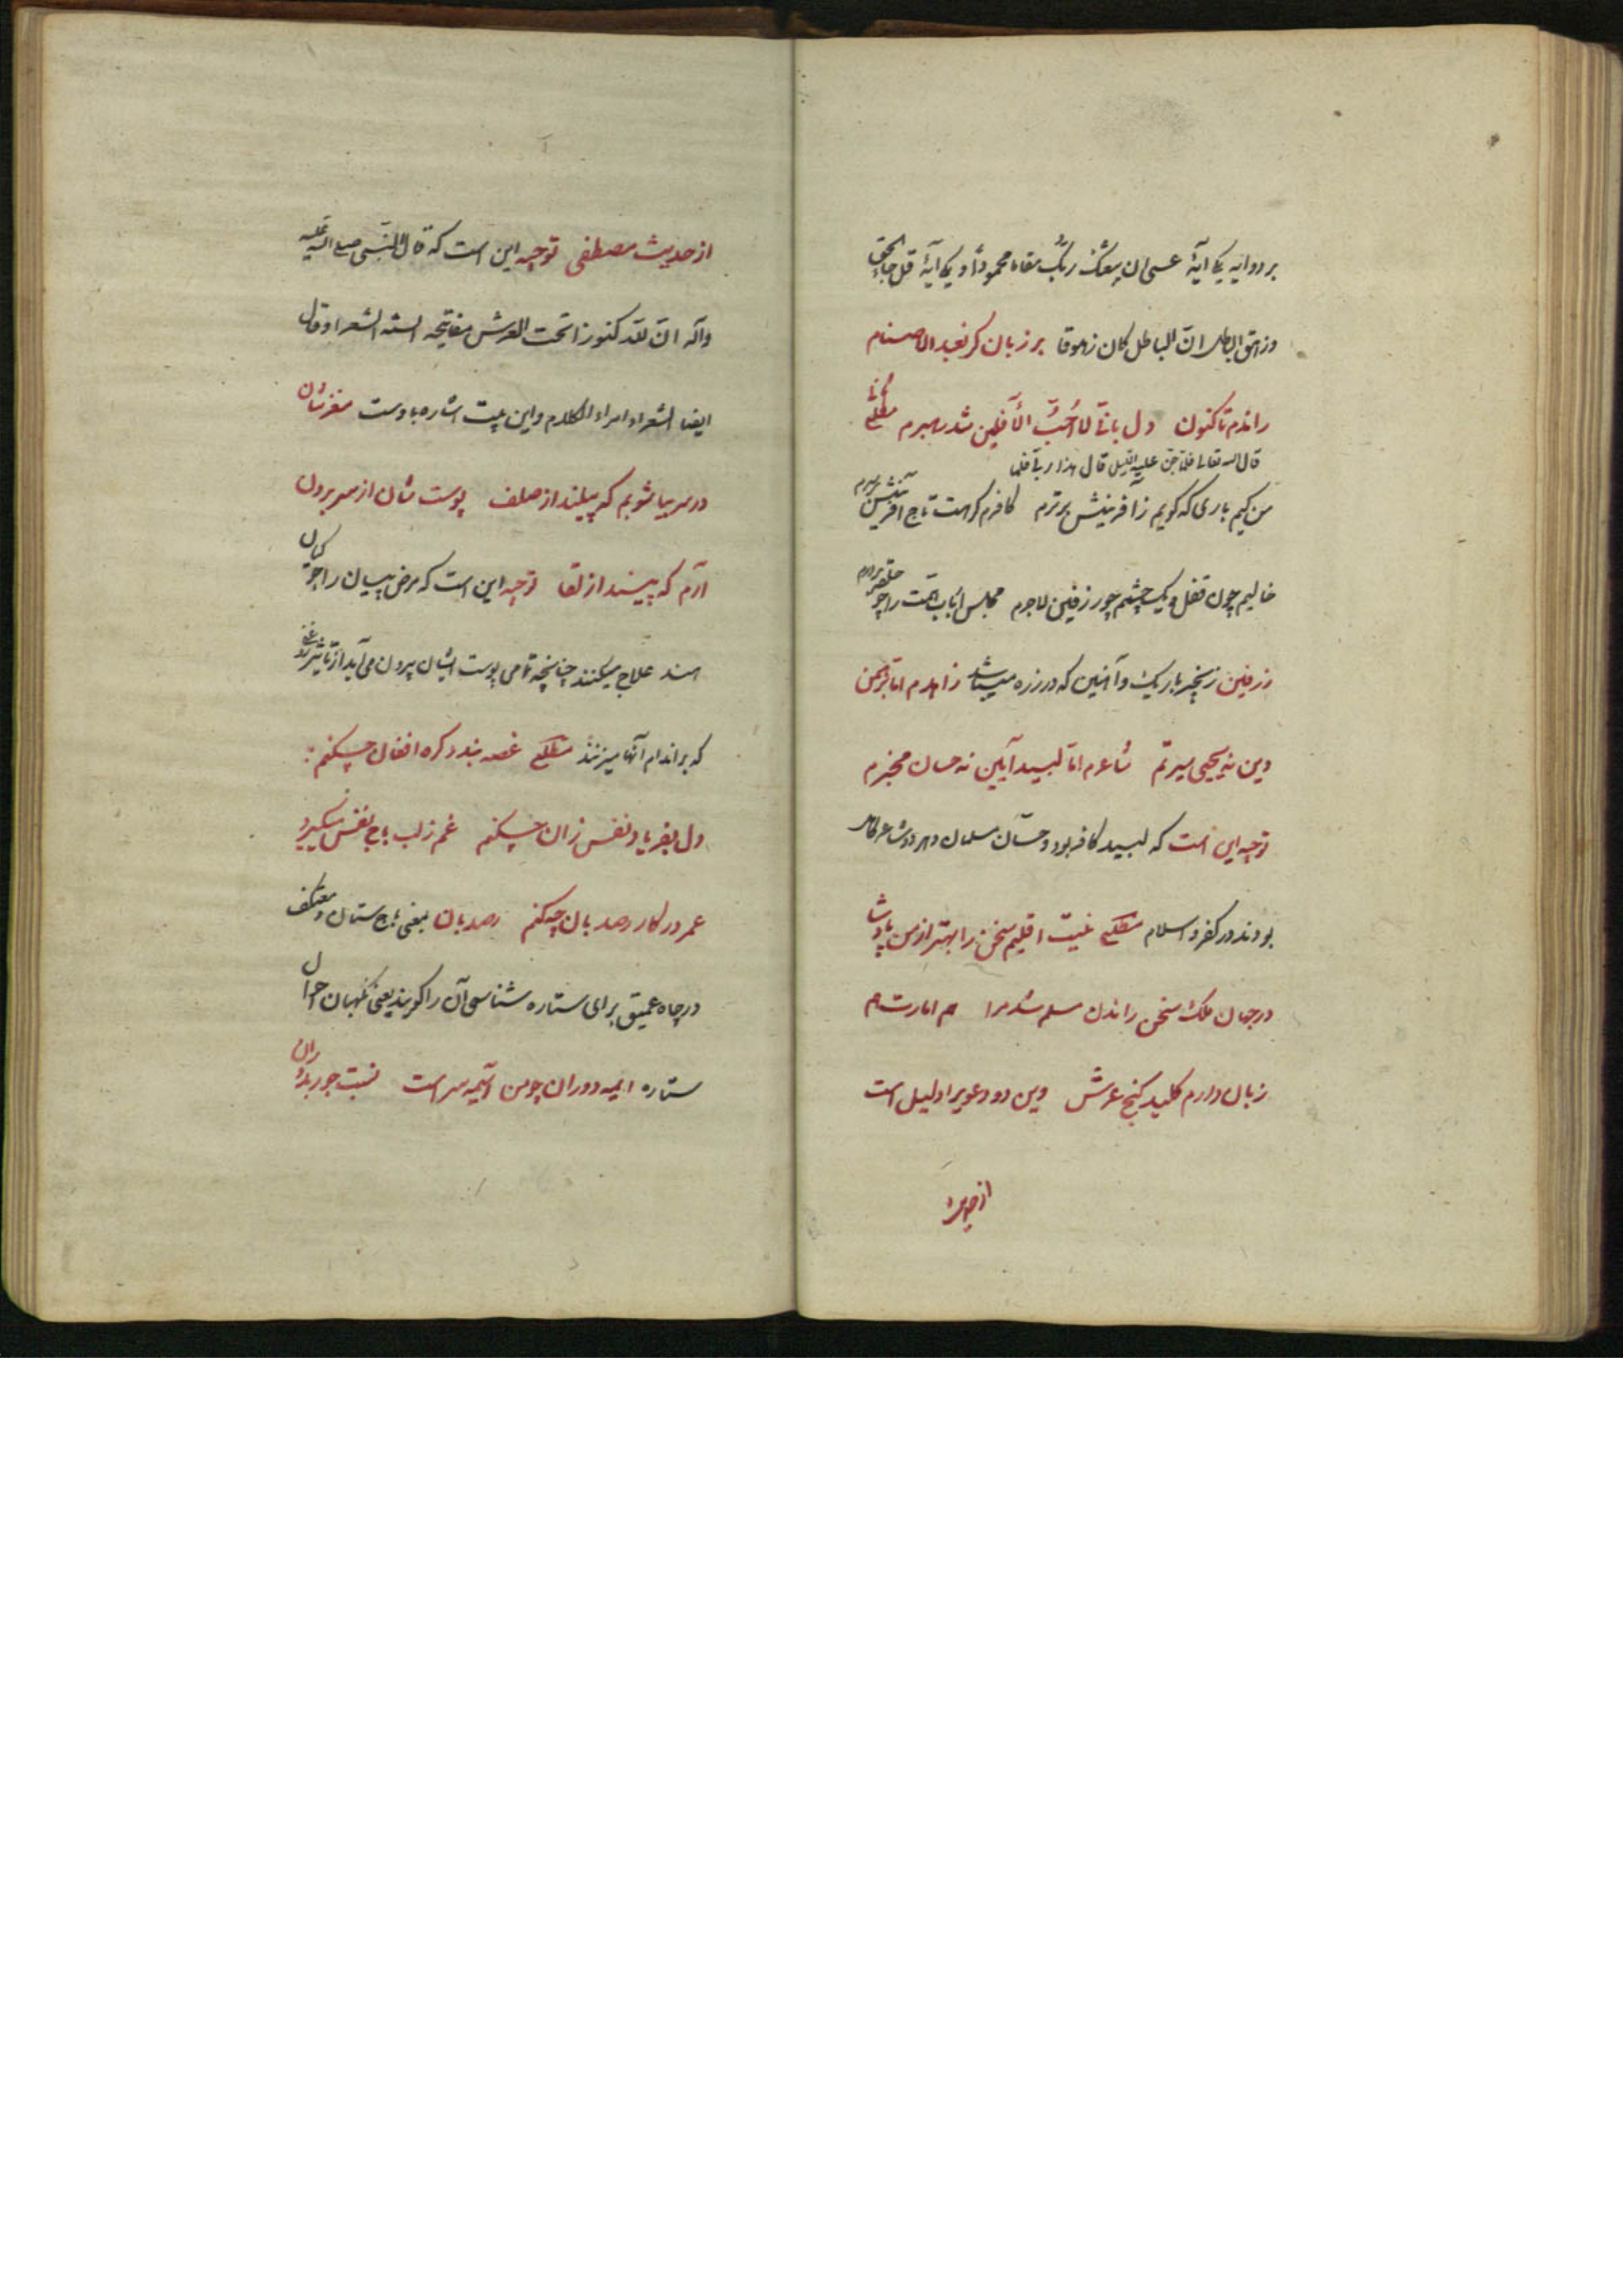 بر دو ایه یکی آیهٔ عسی ان یبعثک ربک مقاما محمودا و یکی آیهٔ قل جاء الحق
وزهق الباطل انّ الباطل کان زهوقا بر زبان کر نعبد الاصنام
راندم تاکنون دل بانّی لا اُحبّ الآفلین شد رهبرم مطلع ثانی
قال الله تعالی فلمّا جنّ علیه اللیل قال هذا ربی فلما
من کیم باری که کویم زآفرینش برترم کافرم کر هست تاج آفرینش بر سرم
خالیم چون قفل و یک چشم چو زرفین لاجرم مجلس ارباب همت را چو حلقه بر درم
زرفین زنجیر باریک و آهنین که در زره میباشد زاهدم اما برهمن
دین نه یحیی سیرتم شاعرم امّا لبید آیین نه حسان مخبرم
توجیه این است که لبید کافر بود و حسّان مسلمان و هر دو شاعر کامل
بودند در کفر و اسلام مطلع نیست اقلیم سخن را بهتر از من پادشا
در جهان ملک سخن راندن مسلم شد مرا هم امارت هم
زبان دارم کلید کنج عرش وین دو دعوی را دلیل است
از حدیث
از حدیث مصطفی توجیه این است که قال النبی صلی الله علیه
وآله انّ لله کنوزا تحت العرش مفاتیحه السنه الشعراء وقال
ایضا الشعراء امراء الکلام واین بیت اشاره باوست مغزشان
در سر بیاشوبم که پیلند از صلف پوست شان از سر برون
آرم که پیسند از لقا توجیه این است که مرض پیسیان را جوکیان
هند علاج میکنند چنانچه تمامی پوست ایشان بیرون می آید از تاثیر روغن
که بر اندام آنها میزنند مطلع غصه بندد کره افغان چکنم
دل بفریاد و نفس زان چکنم غم ز لب باج نفس میگیرد
عمر در کار رصدبان چکنم رصدبان بمعنی باج ستان و معتکف
در چاه عمیق برای ستاره شناسی آن را کویند یعنی نکهبان احوال
ستاره اینهمه دوران چو من آسیمه سر است نسبت جور بدوران